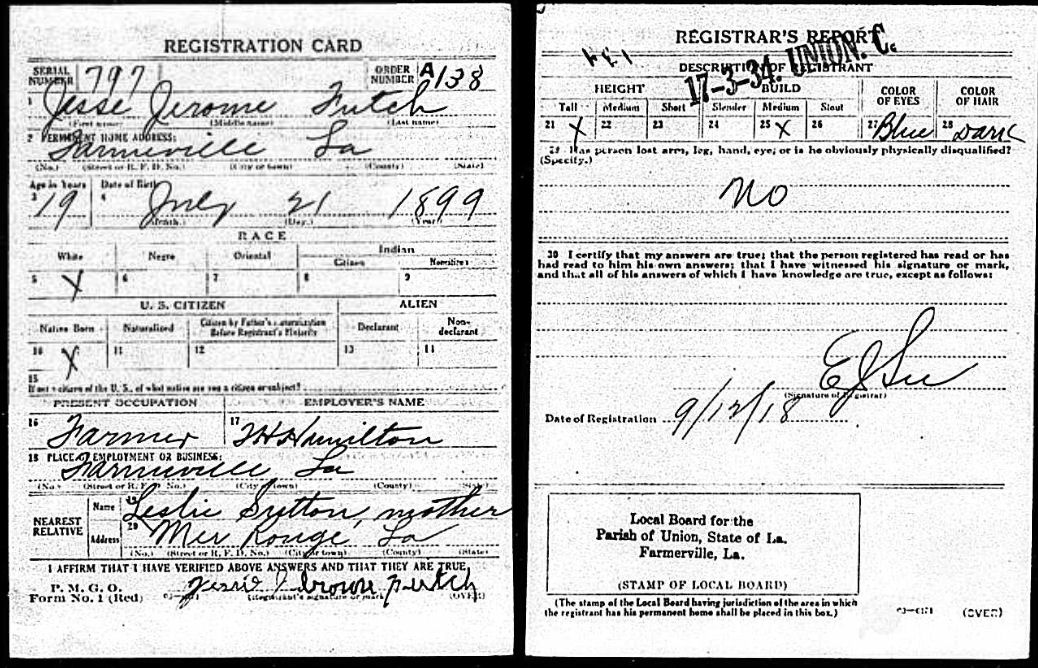 REGISTRATION CARD
SERIAL NUMBER 797 ORDER NUMBER A138
1 Jesse Jerome Futch
(First name) (Middle name) (Last name)
2 PERMANENT HOME ADDRESS:
Farmerville La
(No.) (Street or R. F. D. No.) (City or town) (County) (State)
Age in Years Date of Birth
3 19 4 July 21 1899
(Month.) (Day.) (Year.)
RACE
White Negro Oriental Indian
Citizen Noncitizen
5 X 6 7 8 9
U. S. CITIZEN ALIEN
Native Born Naturalized Citizen by Father's Naturalization Before Registrant's Majority Declarant Non-declarant
10 X 11 12 13 14
15
If not a citizen of the U. S., of what nation are you a citizen or subject?
PRESENT OCCUPATION EMPLOYER'S NAME
16 Farmer 17 Hamilton
18 PLACE OF EMPLOYMENT OR BUSINESS:
Farmerville La
(No.) (Street or R. F. D. No.) (City or town) (County) (State)
NEAREST RELATIVE
Name 19 Leslie Sutton, mother
Address 20 Mer Rouge La
(No.) (Street or R. F. D. No.) (City or town) (County) (State)
I AFFIRM THAT I HAVE VERIFIED ABOVE ANSWERS AND THAT THEY ARE TRUE
P. M. G. O.
Form No. 1 (Red) (Registrant's signature or mark) (OVER)
REGISTRAR'S REPORT
17-3-34. UNION. C.
DESCRIPTION OF REGISTRANT
HEIGHT BUILD COLOR OF EYES COLOR OF HAIR
Tall Medium Short Slender Medium Stout
21 X 22 23 24 25 X 26 27 Blue 28 Dark
29 Has person lost arm, leg, hand, eye, or is he obviously physically disqualified?
(Specify.)
No
30 I certify that my answers are true; that the person registered has read or has
had read to him his own answers; that I have witnessed his signature or mark,
and that all of his answers of which I have knowledge are true, except as follows:
(Signature of Registrar)
Date of Registration 9/12/18
Local Board for the
Parish of Union, State of La.
Farmerville, La.
(STAMP OF LOCAL BOARD)
(The stamp of the Local Board having jurisdiction of the area in which
the registrant has his permanent home shall be placed in this box.)
(OVER)